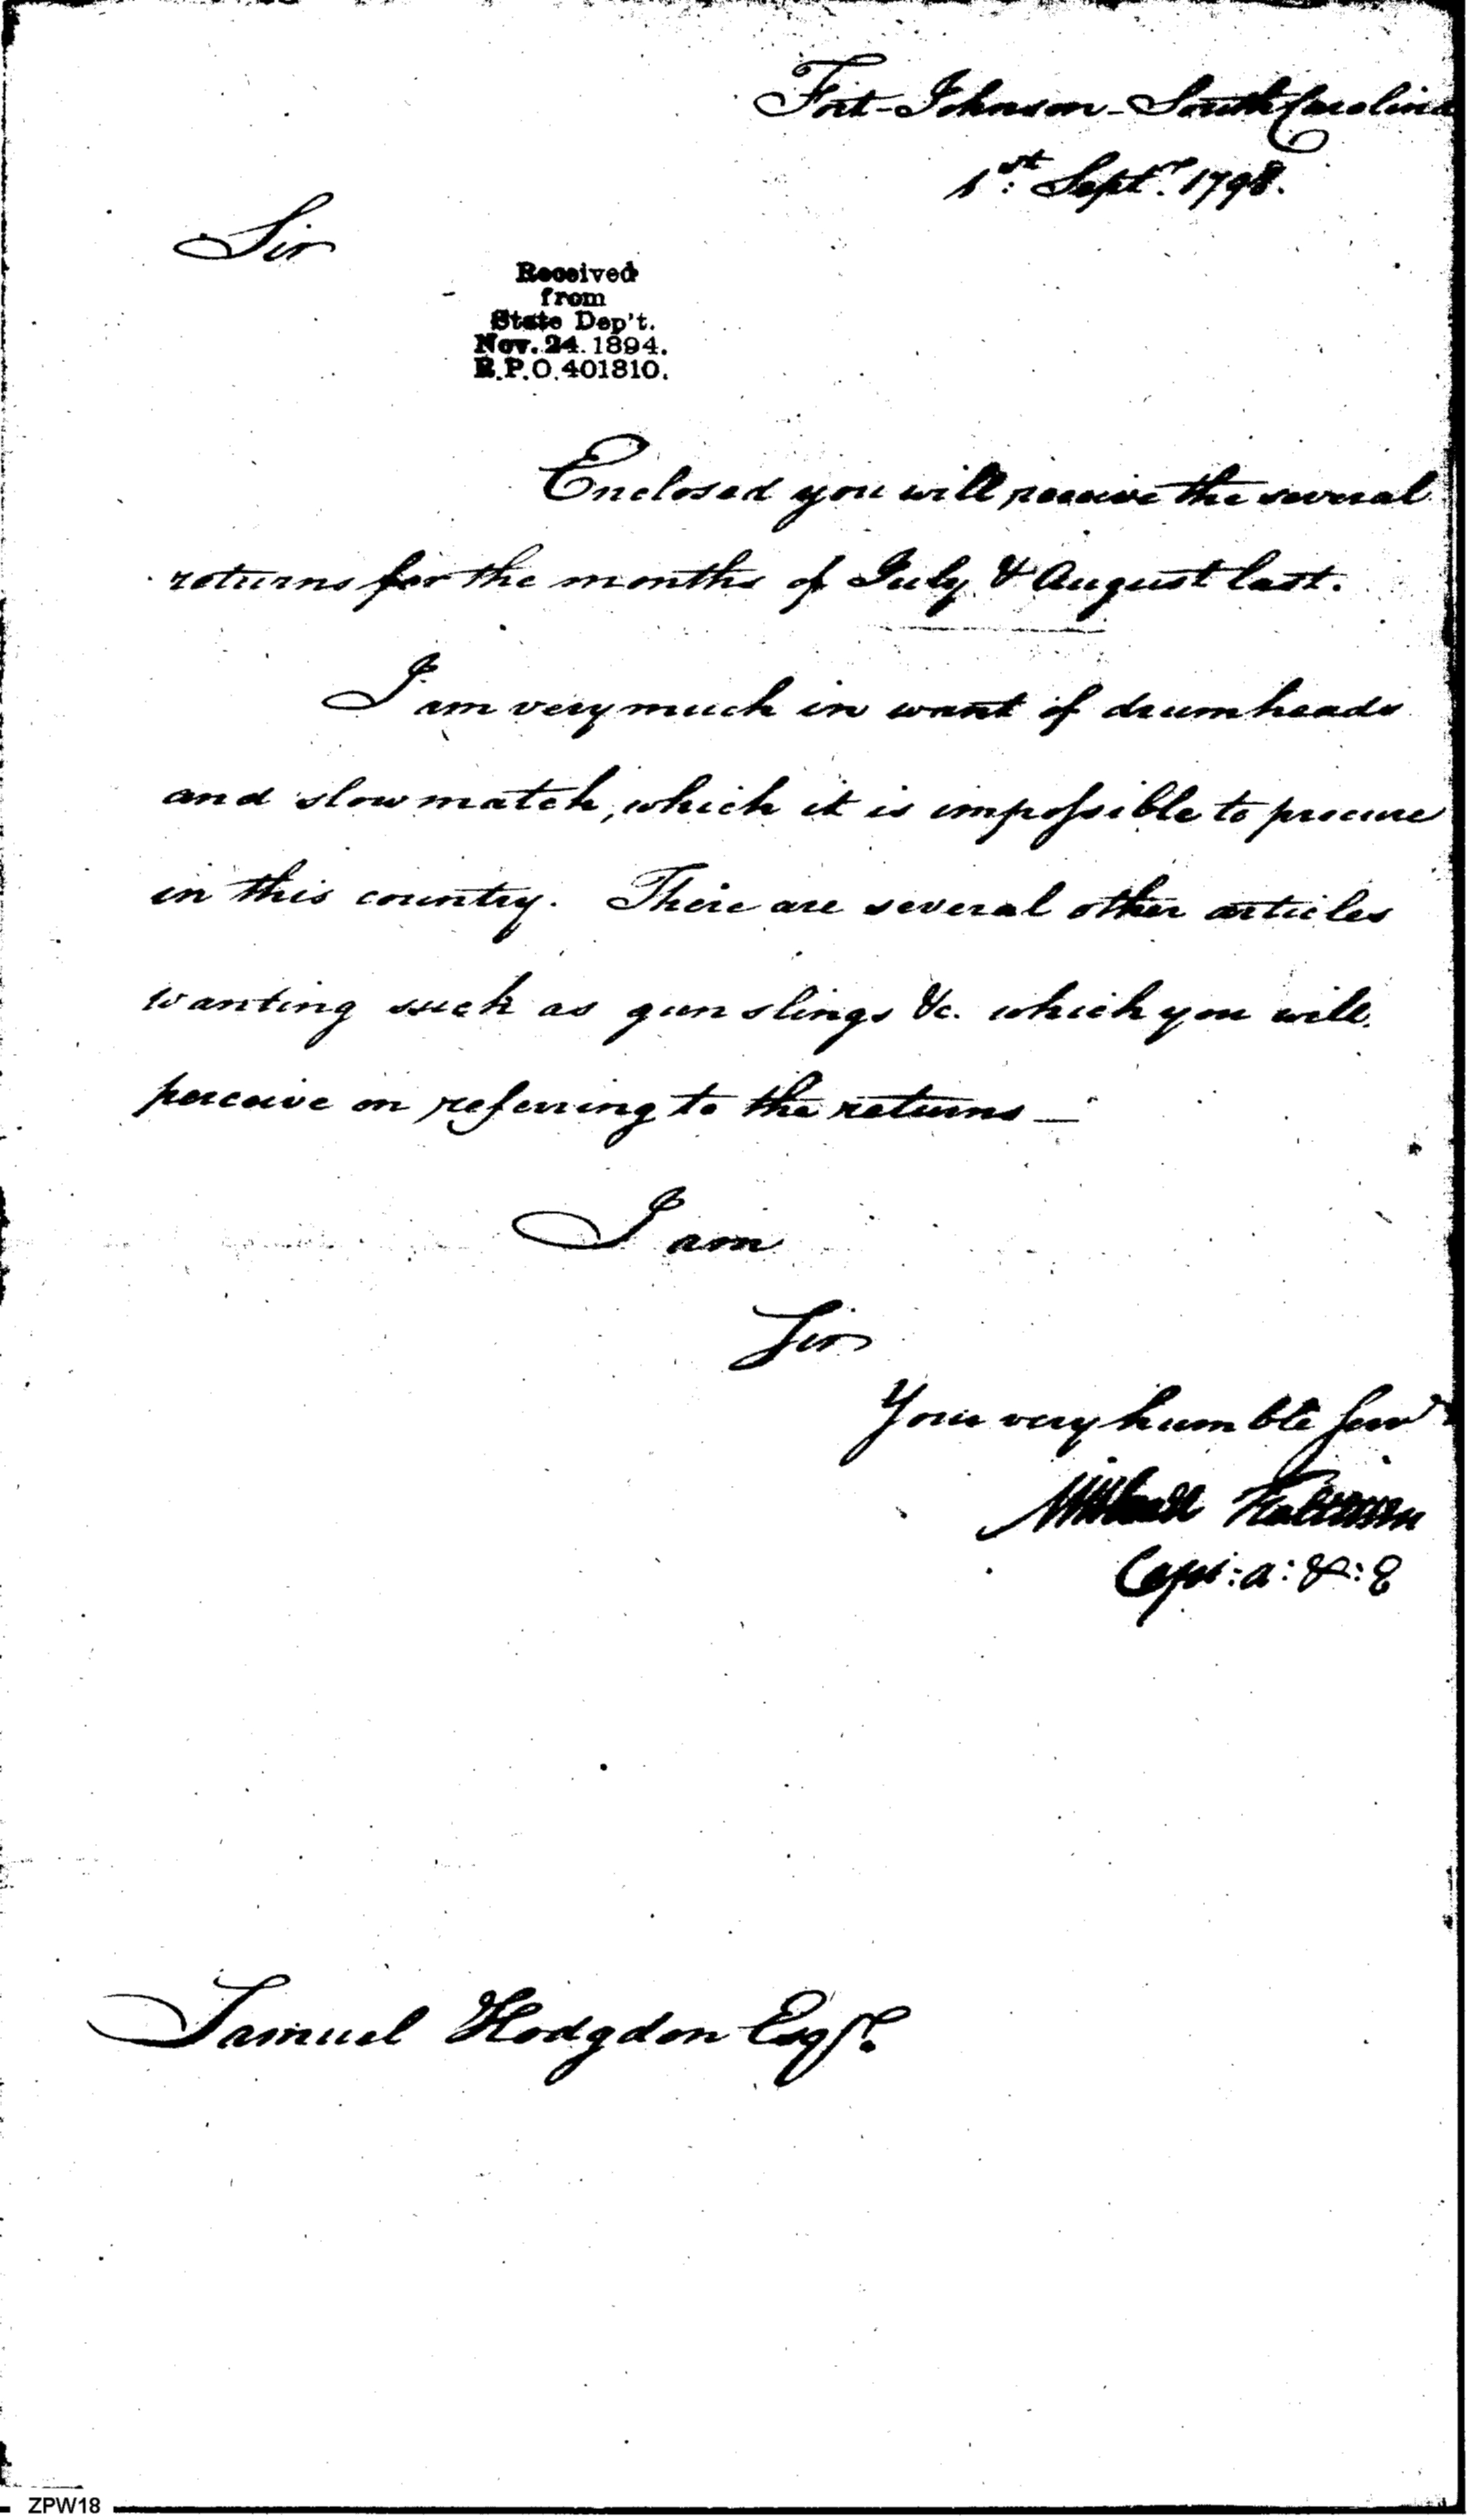 Fort-Johnson-South Carolina
1st: Septr. 1798.
Sir
Received
from
State Dep't.
Nov. 24. 1894.
R.P.O. 401810.
Enclosed you will receive the several
returns for the months of July & August last.
I am very much in want of drumheads
and slowmatch, which it is impossible to procure
in this country. There are several other articles
wanting such as gun slings &c. which you will
perceive on referring to the returns —
I am
Sir
Your very humble Servt
Capt: a: & : E
Samuel Hodgdon Esqr.
ZPW18